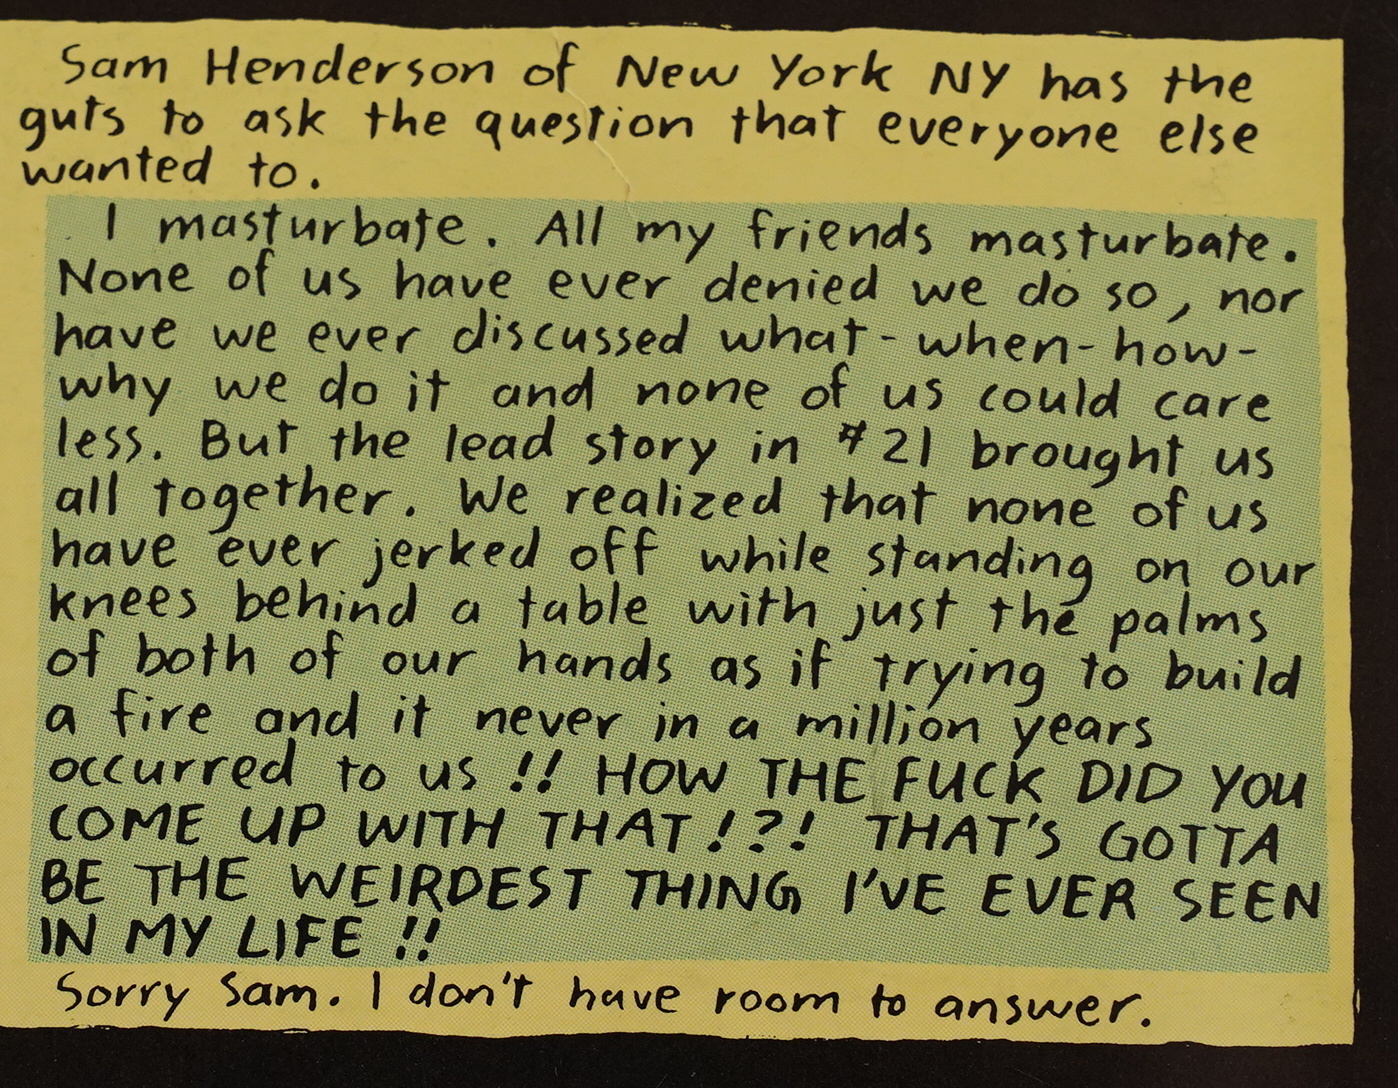 Sam Henderson of New York NY has the
guts to ask the question that everyone else
wanted to.
I masturbate. All my friends masturbate.
None of us have ever denied we do so, nor
have we ever discussed what-when-how-
why we do it and none of us could care
less. But the lead story in #21 brought us
all together. We realized that none of us
have ever jerked off while standing on our
knees behind a table with just the palms
of both of our hands as if trying to build
a fire and it never in a million years
occurred to us!! HOW THE FUCK DID YOU
COME UP WITH THAT!?! THAT'S GOTTA
BE THE WEIRDEST THING I'VE EVER SEEN
IN MY LIFE!!
Sorry Sam. I don't have room to answer.